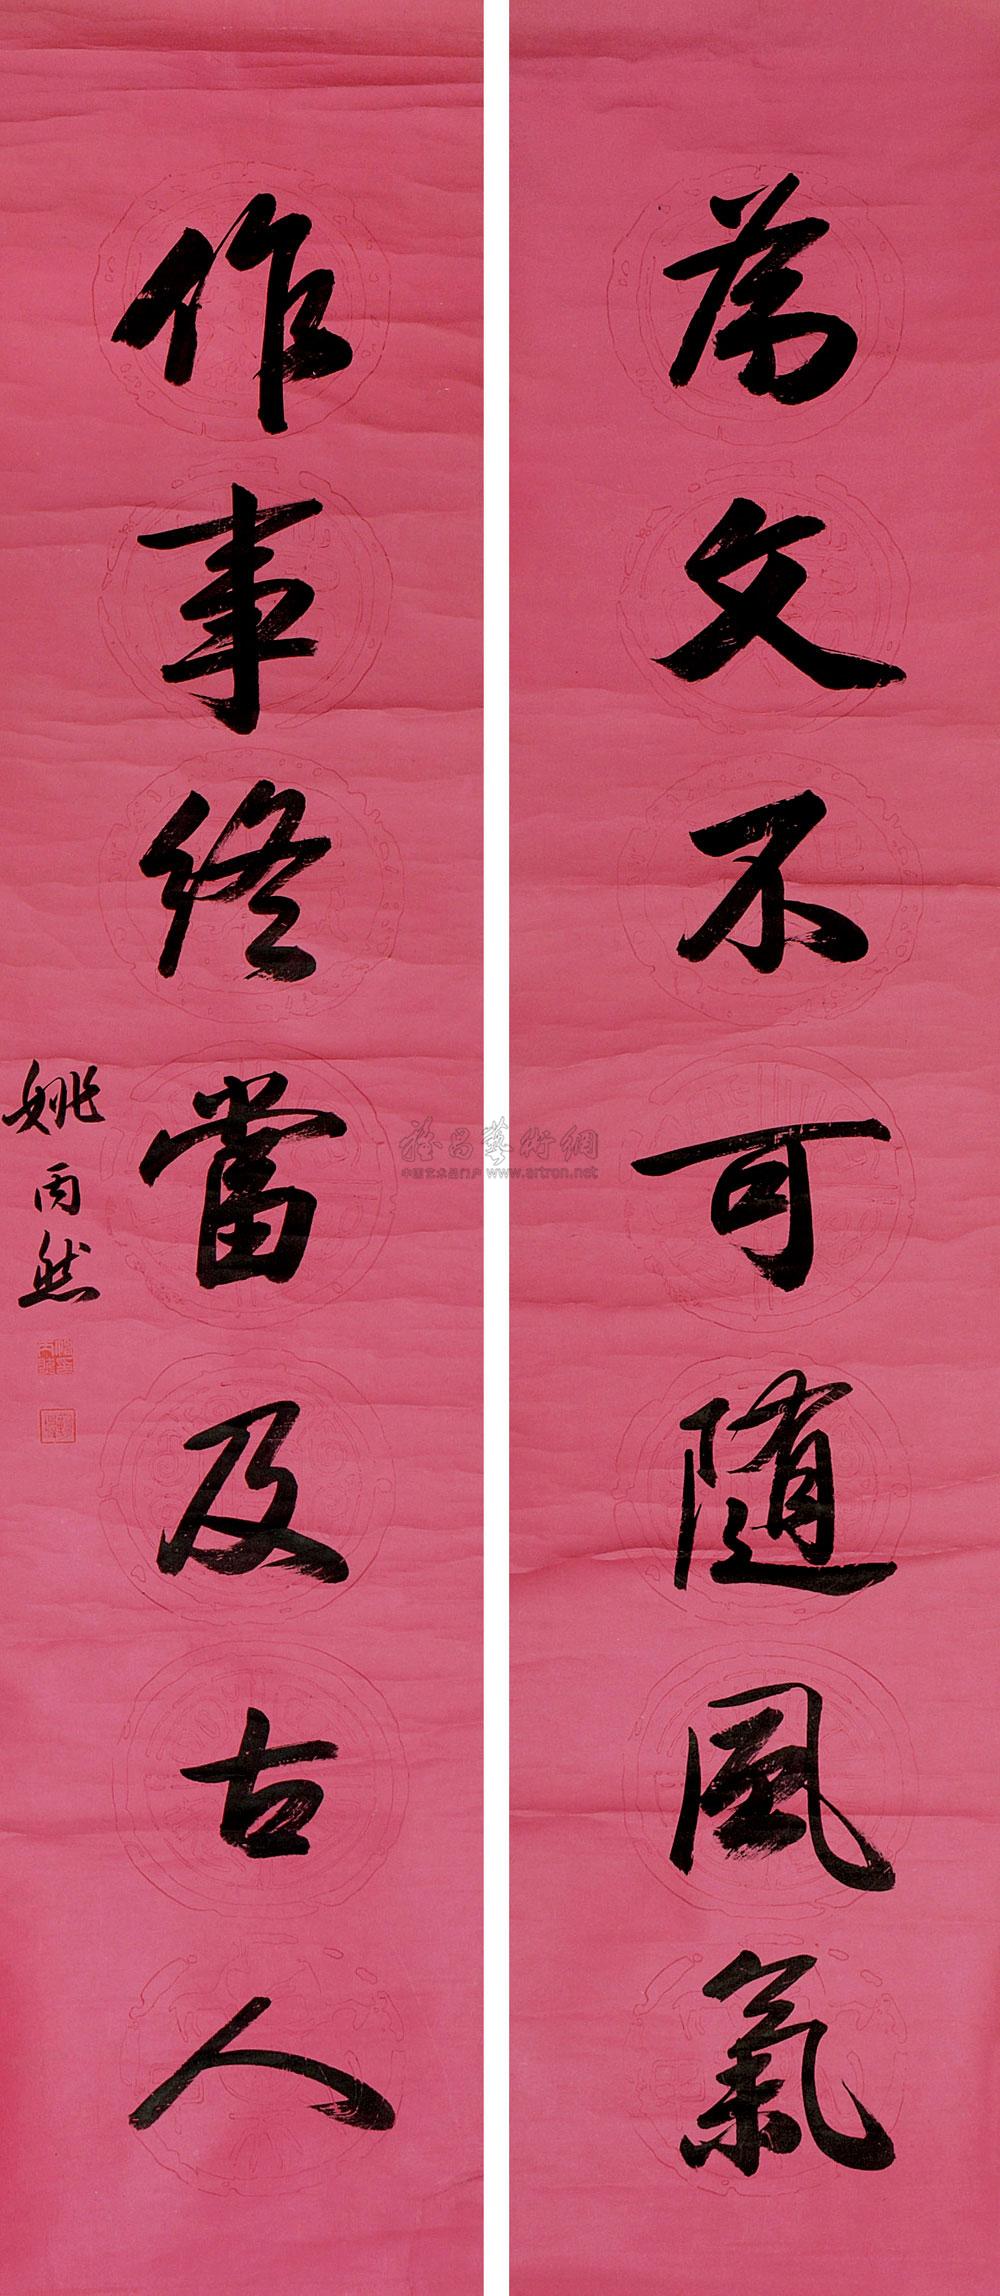 為文不可隨風氣
作事終當及古人
姚丙然
雅昌藝術網
中国艺术品门户 www.artron.net